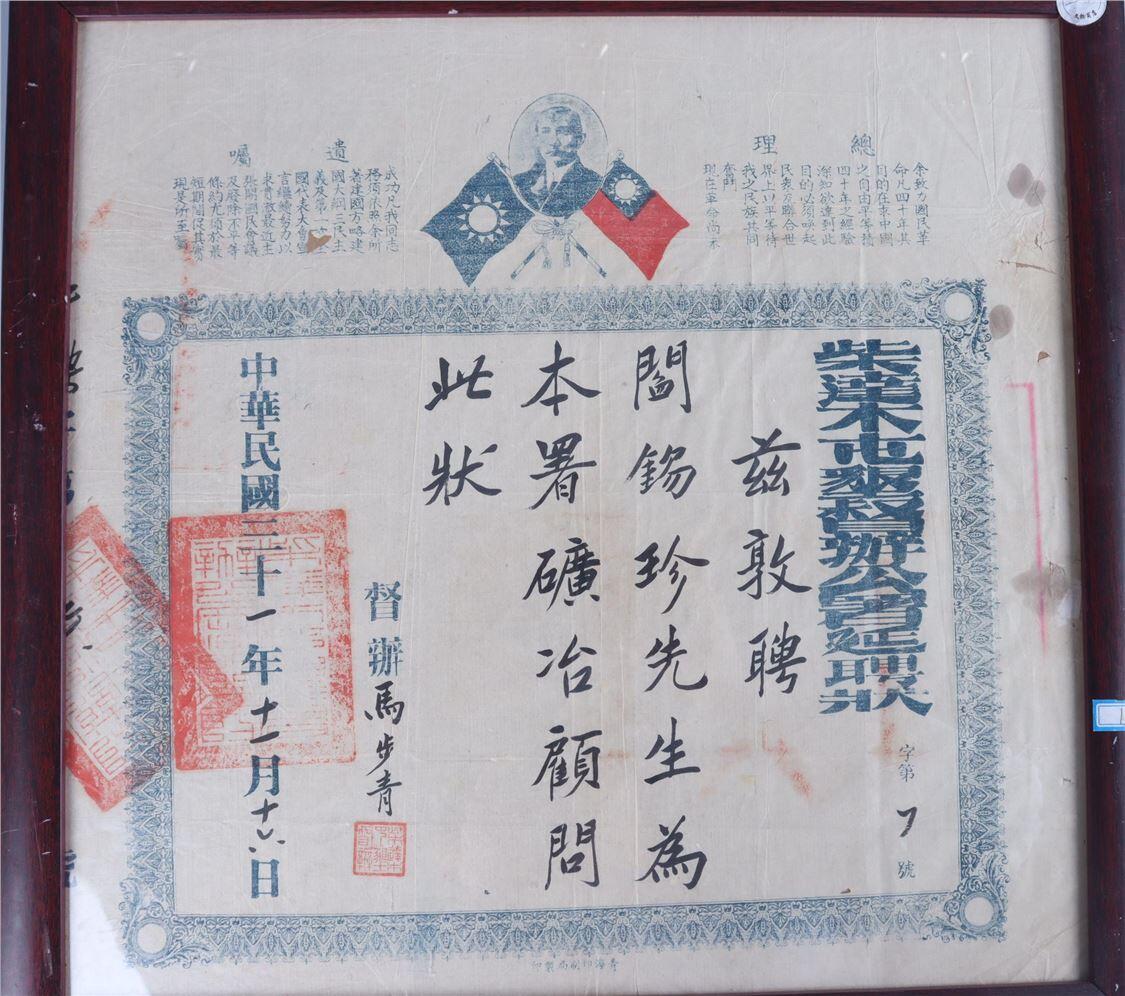 總理
遺囑
余致力國民革
命凡四十年其
目的在求中國
之自由平等積
四十年之經驗
深知欲達到此
目的必須喚起
民衆及聯合世
界上以平等待
我之民族共同
奮鬥
現在革命尚未
成功凡我同志
務須依照余所
著建國方略建
國大綱三民主
義及第一次全
國代表大會宣
言繼續努力以
求貫徹最近主
張開國民會議
及廢除不平等
條約尤須於最
短期間促其實
現是所至囑
柴達木屯墾督辦公署延聘狀
字第7號
茲敦聘
閻錫珍先生為
本署礦冶顧問
此狀
督辦馬步青
中華民國三十一年十一月十六日
青海印刷局製印